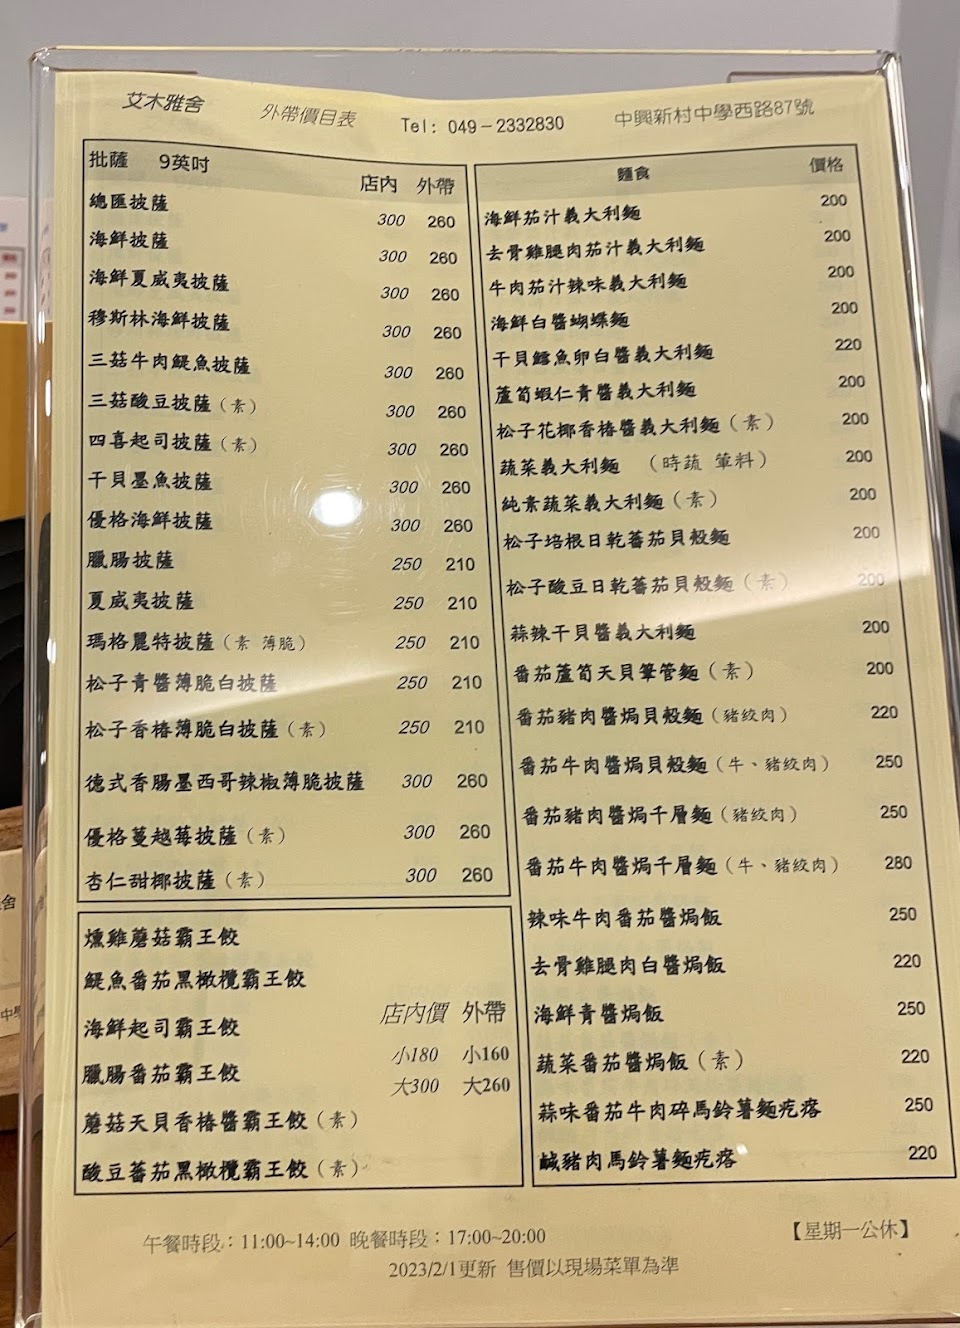 艾木雅舍 外帶價目表 Tel: 049-2332830 中興新村中學西路87號
批薩 9英吋 店內 外帶
總匯披薩 300 260
海鮮披薩 300 260
海鮮夏威夷披薩 300 260
穆斯林海鮮披薩 300 260
三菇牛肉鯷魚披薩 300 260
三菇酸豆披薩(素) 300 260
四喜起司披薩(素) 300 260
干貝墨魚披薩 300 260
優格海鮮披薩 300 260
臘腸披薩 250 210
夏威夷披薩 250 210
瑪格麗特披薩(素 薄脆) 250 210
松子青醬薄脆白披薩 250 210
松子香椿薄脆白披薩(素) 250 210
德式香腸墨西哥辣椒薄脆披薩 300 260
優格蔓越莓披薩(素) 300 260
杏仁甜椰披薩(素) 300 260
燻雞蘑菇霸王餃
鯷魚番茄黑橄欖霸王餃
海鮮起司霸王餃
臘腸番茄霸王餃
蘑菇天貝香椿醬霸王餃(素)
酸豆蕃茄黑橄欖霸王餃(素)
店內價 外帶
小180 小160
大300 大260
麵食 價格
海鮮茄汁義大利麵 200
去骨雞腿肉茄汁義大利麵 200
牛肉茄汁辣味義大利麵 200
海鮮白醬蝴蝶麵 200
干貝鱈魚卵白醬義大利麵 220
蘆筍蝦仁青醬義大利麵 200
松子花椰香椿醬義大利麵(素) 200
蔬菜義大利麵 (時蔬 葷料) 200
純素蔬菜義大利麵(素) 200
松子培根日乾蕃茄貝殼麵 200
松子酸豆日乾蕃茄貝殼麵(素) 200
蒜辣干貝醬義大利麵 200
番茄蘆筍天貝筆管麵(素) 200
番茄豬肉醬焗貝殼麵(豬絞肉) 220
番茄牛肉醬焗貝殼麵(牛、豬絞肉) 250
番茄豬肉醬焗千層麵(豬絞肉) 250
番茄牛肉醬焗千層麵(牛、豬絞肉) 280
辣味牛肉番茄醬焗飯 250
去骨雞腿肉白醬焗飯 220
海鮮青醬焗飯 250
蔬菜番茄醬焗飯(素) 220
蒜味番茄牛肉碎馬鈴薯麵疙瘩 250
鹹豬肉馬鈴薯麵疙瘩 220
午餐時段：11:00~14:00 晚餐時段：17:00~20:00 【星期一公休】
2023/2/1更新 售價以現場菜單為準